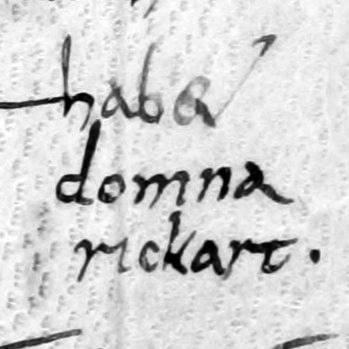 hab&
domna
rickart.